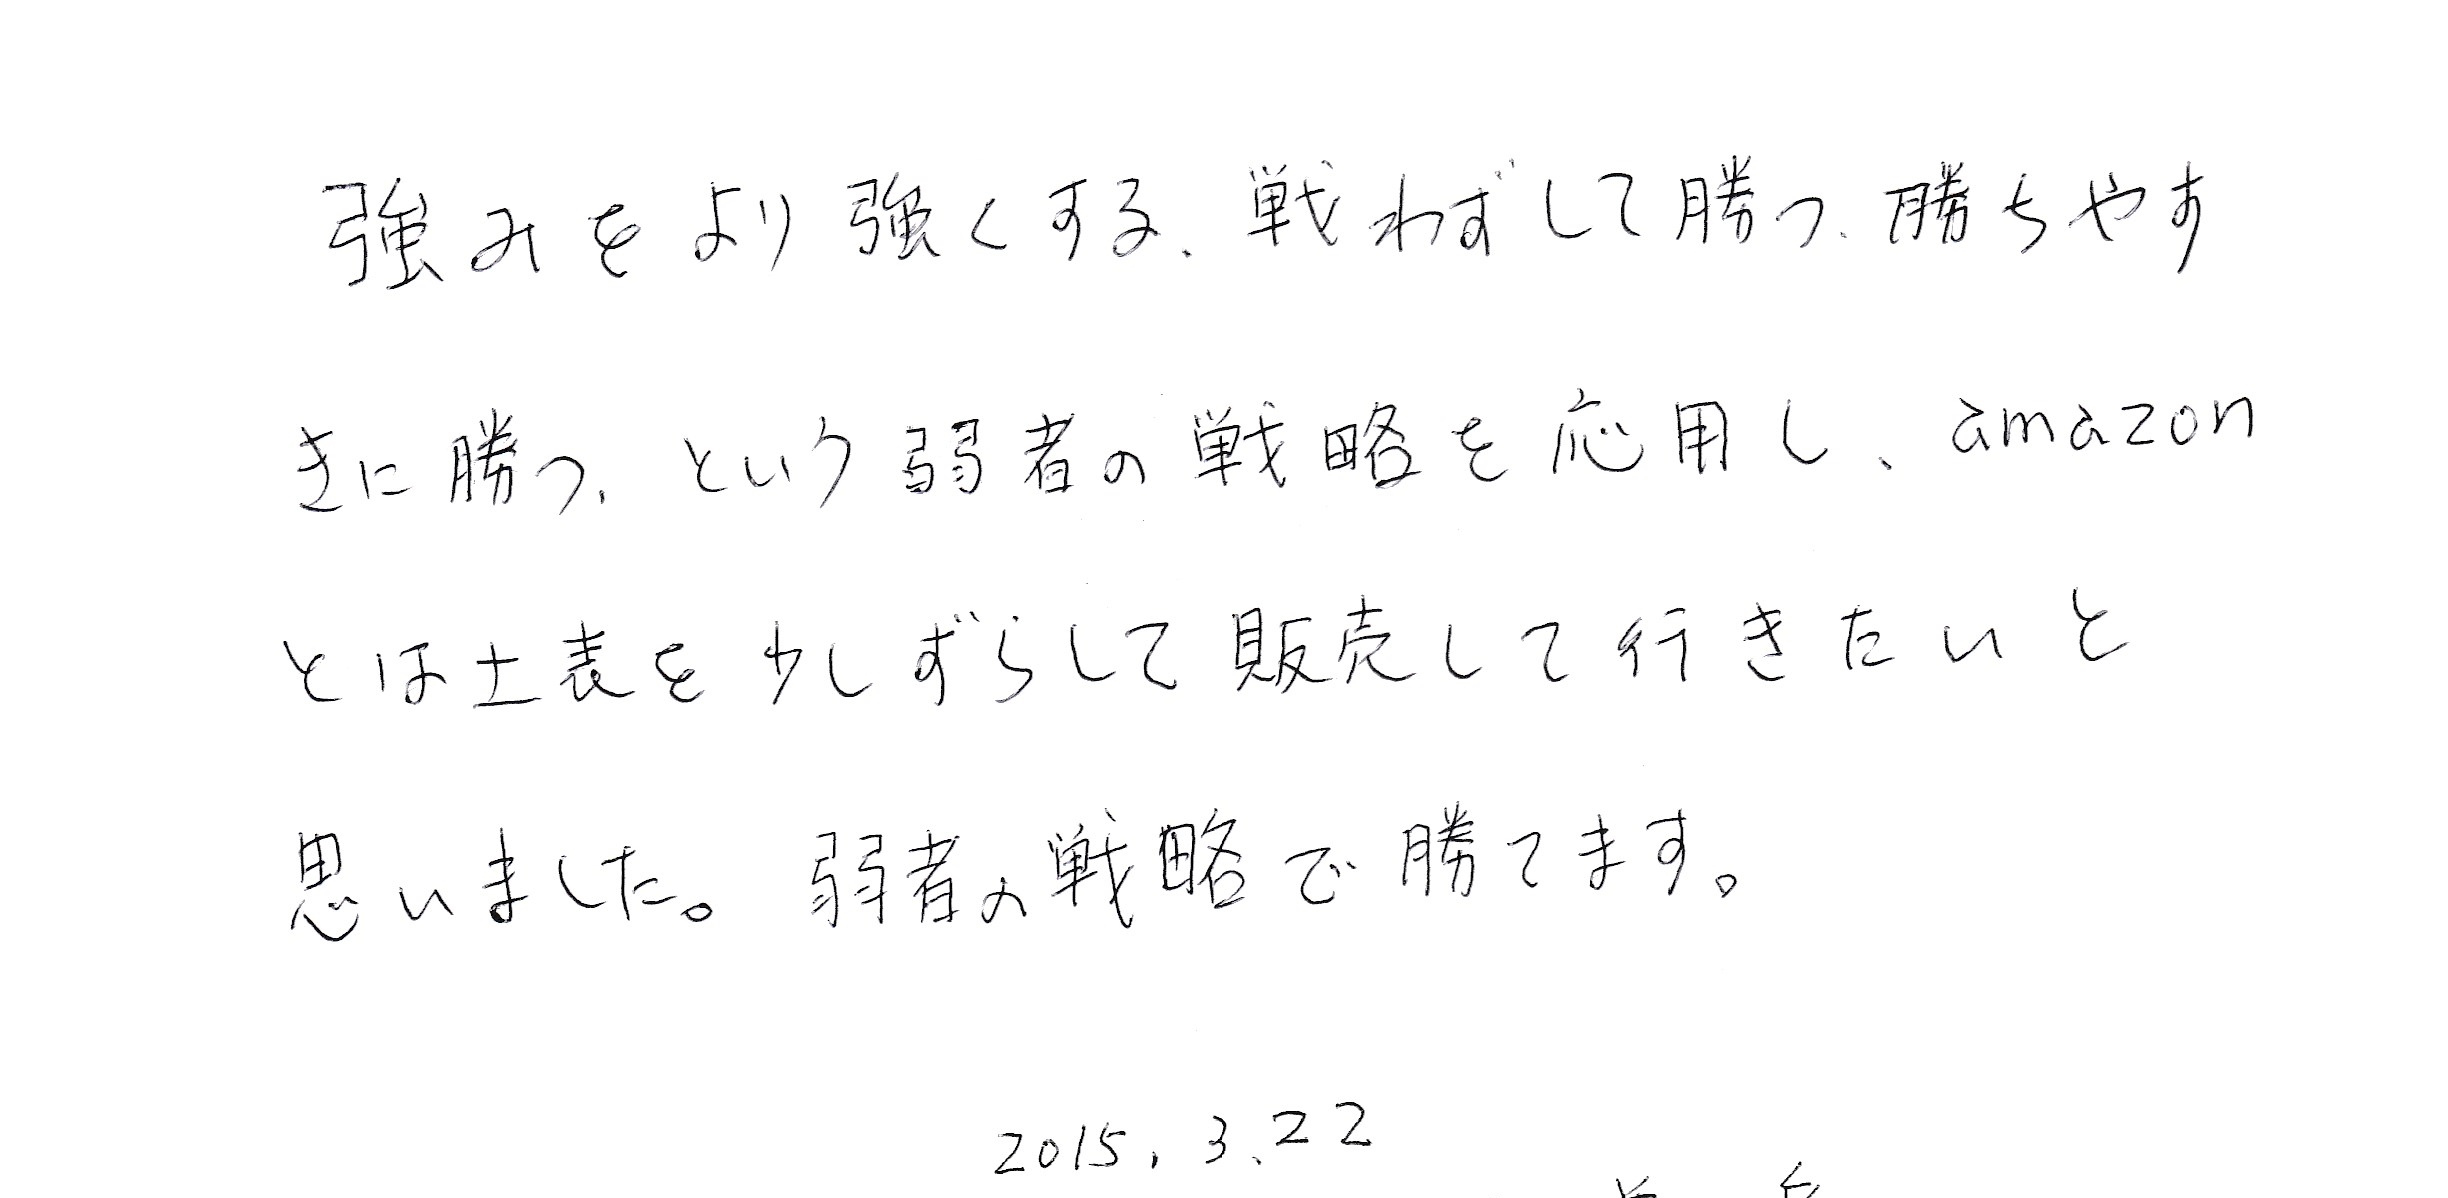 強みをより強くする、戦わずして勝つ、勝ちやす
きに勝つ、という弱者の戦略を応用し、amazon
とは土表を少しずらして販売して行きたいと
思いました。弱者の戦略で勝てます。
2015.3.22